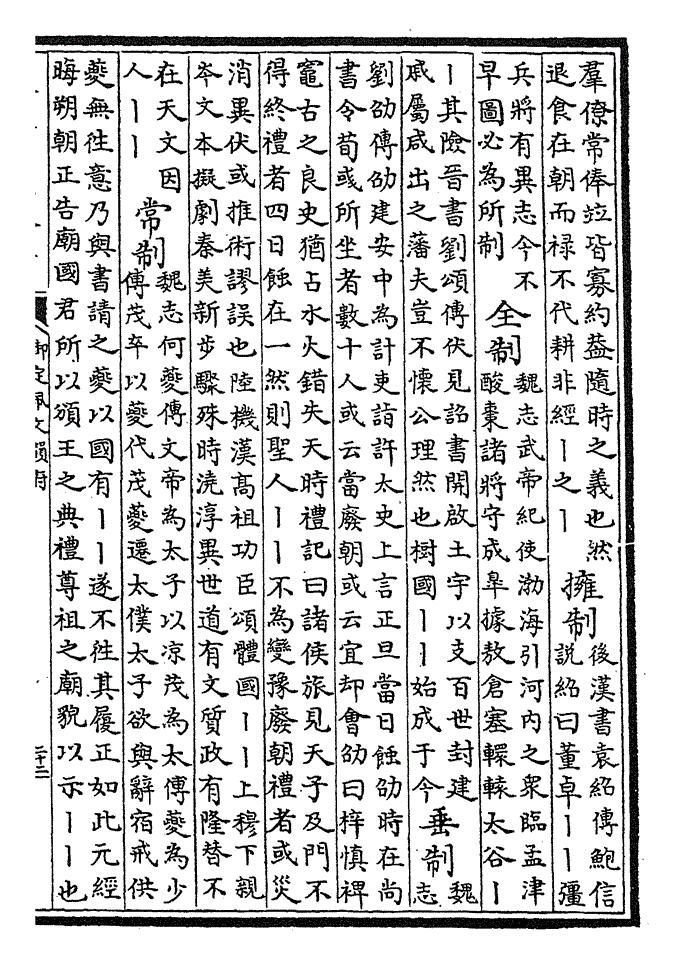 羣僚常俸竝皆寡約葢隨時之義也然
退食在朝而禄不代耕非經丨之丨
擁制
後漢書袁紹傳鮑信
説紹曰董卓丨丨彊
兵將有異志今不
早圖必為所制
全制
魏志武帝紀使渤海引河内之衆臨孟津
酸棗諸將守成臯據敖倉塞轘轅太谷丨
丨其險晉書劉頌傳伏見詔書開啟土宇以支百世封建
戚屬咸出之藩夫豈不懷公理然也樹國丨丨始成于今
垂制
魏
志
劉劭傳劭建安中為計吏詣許太史上言正旦當日蝕劭時在尚
書令荀彧所坐者數十人或云當廢朝或云宜却會劭曰梓慎禆
竈古之良史猶占水火錯失天時禮記曰諸侯旅見天子及門不
得終禮者四日蝕在一然則聖人丨丨不為變豫廢朝禮者或災
消異伏或推術謬誤也陸機漢高祖功臣頌體國丨丨上穆下親
岑文本擬劇秦美新步驟殊時澆淳異世道有文質政有隆替不
在天文因
人丨丨
常制
魏志何夔傳文帝為太子以凉茂為太傅夔為少
傅茂卒以夔代茂夔遷太僕太子欲與辭宿戒供
夔無徃意乃與書請之夔以國有丨丨遂不徃其履正如此元經
晦朔朝正告廟國君所以頒王之典禮尊祖之廟貌以示丨丨也
御定佩文韻府